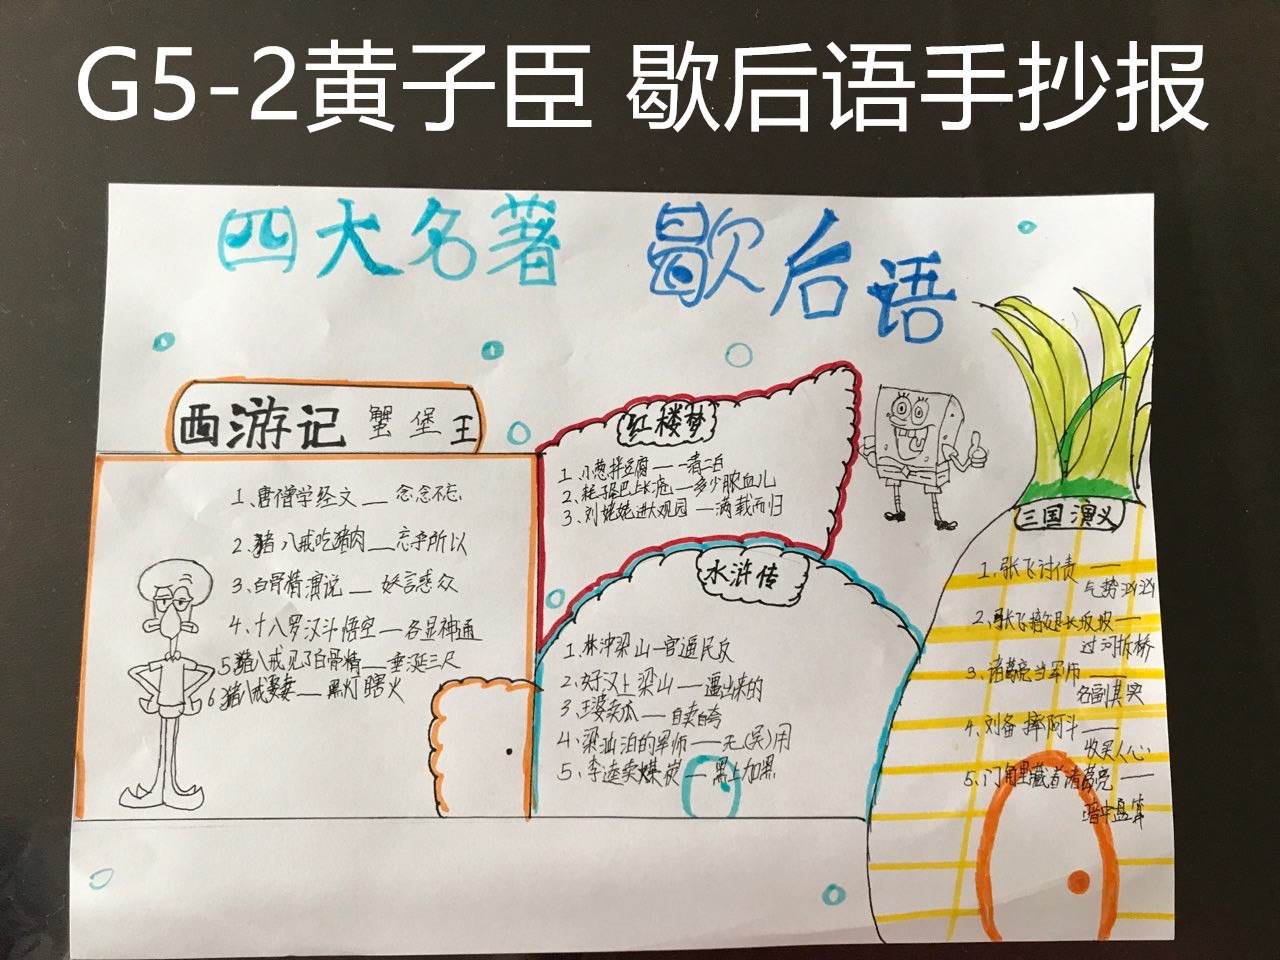 G5-2黄子臣 歇后语手抄报
四大名著 歇后语
西游记 蟹堡王
1、唐僧学经文——念念不忘
2、猪八戒吃猪肉——忘乎所以
3、白骨精演说——妖言惑众
4、十八罗汉斗悟空——各显神通
5猪八戒见了白骨精——垂涎三尺
6猪八戒娶妻——黑灯瞎火
红楼梦
1、小葱拌豆腐——一清二白
2、耗子尾巴上长疮——多少脓血儿
3、刘姥姥进大观园——满载而归
水浒传
1、林冲梁山—官逼民反
2、好汉上梁山——逼出来的
3、王婆卖瓜——自卖自夸
4、梁山泊的军师——无(吴)用
5、李逵卖煤炭——黑上加黑
三国演义
1、张飞讨债——
气势汹汹
2、张飞撤退长坂坡——
过河拆桥
3、诸葛亮当军师——
名副其实
4、刘备摔阿斗——
收买人心
5、门角里藏着诸葛亮——
暗中盘算